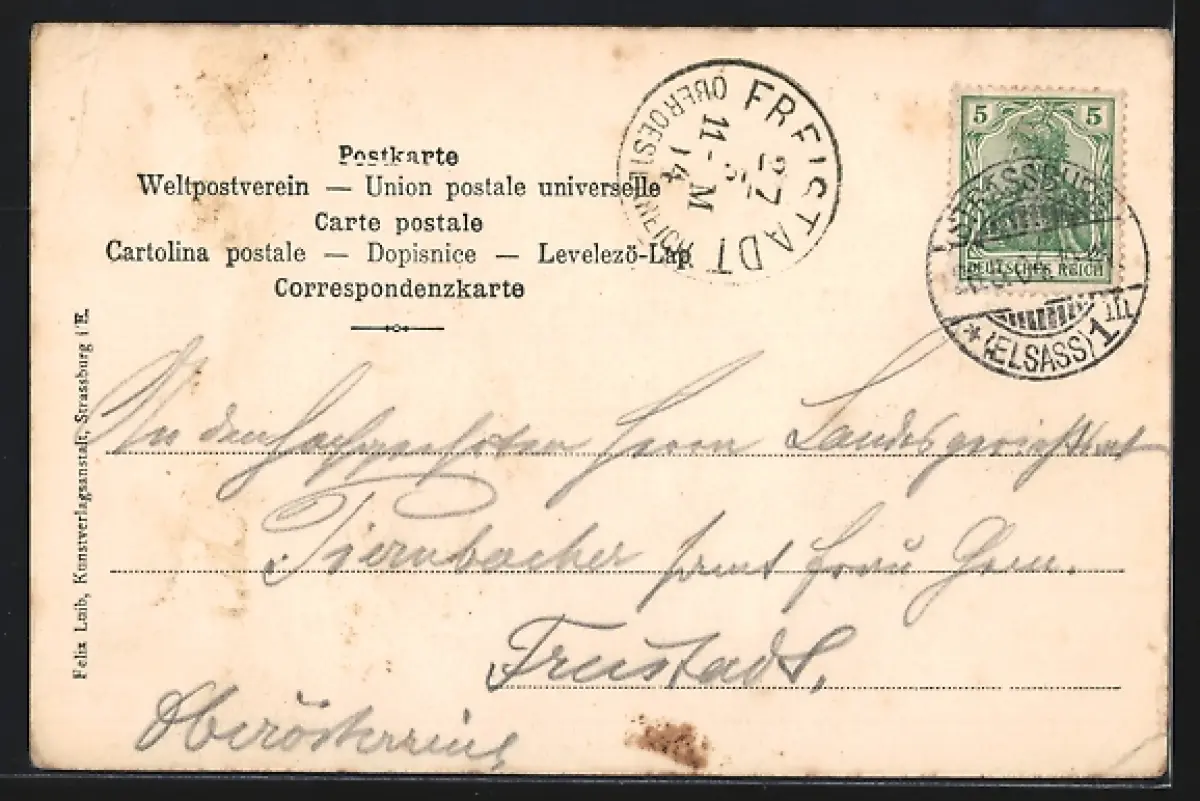 Postkarte
Weltpostverein — Union postale universelle
Carte postale
Cartolina postale — Dopisnice — Levelezö-Lap
Correspondenzkarte
FREISTADT
27
11-M
5 5
DEUTSCHES REICH
STRASSBURG
* (ELSASS) 1
Felix Luib, Kunstverlagsanstalt, Strassburg i/E.
An den hochgeehrten Herrn Landesgerichtsrat
samt Frau Gem.
Freistadt,
Oberösterreich